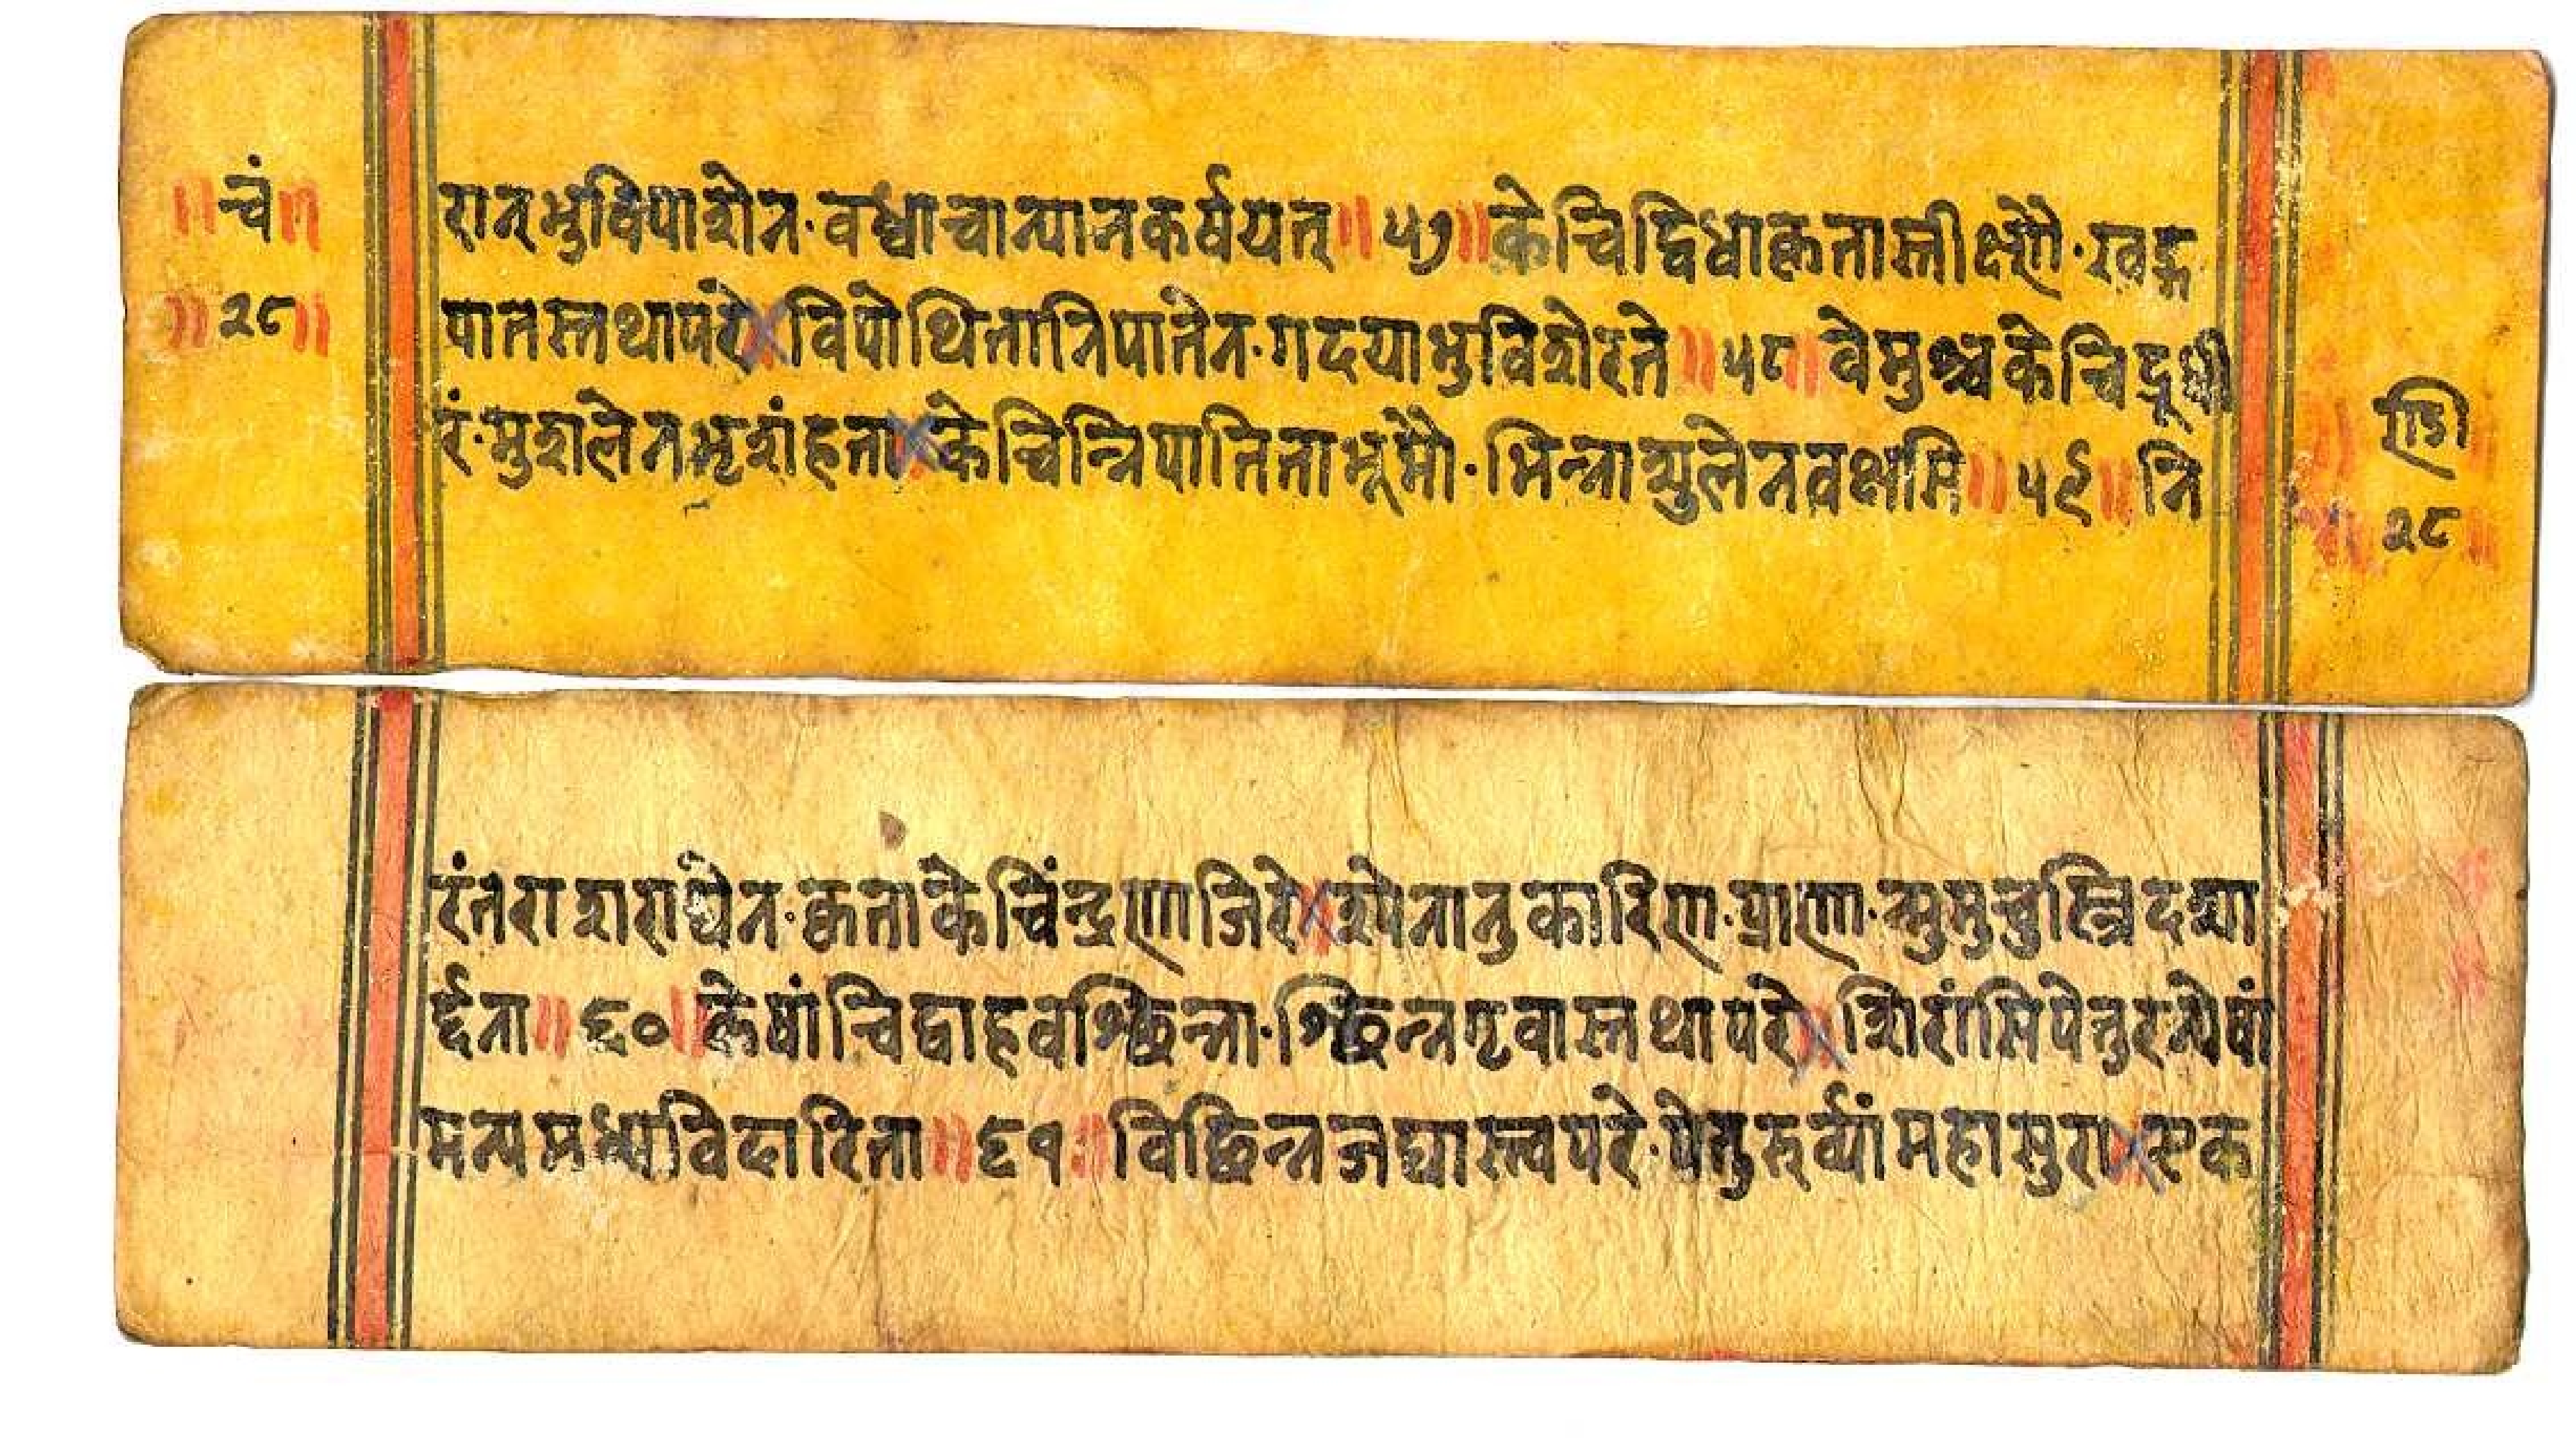 ॥ चं ॥
॥ २८ ॥
रान् भुविपाशेन·वध्वाचान्यानकर्षयत् ॥ ५७ ॥ केचिद्विधाकृतास्तीक्ष्णै·खड्ग
पातस्तथापरे विपोथितानिपातेन·गदयाभुविशेरते ॥ ५८ ॥ वेमुश्चकेचिद्रूधी
रं·मुशलेनभृशंहता केचिन्निपातिताभूमौ·भिन्नाशुलेनवक्षसि ॥ ५९ ॥ नि
डि
२८
रंतराशरौघेन·कृताकेचिंन्द्रणाजिरे श्येनानुकारिण·प्राणा·न्मुमुचुस्त्रिदशा
र्द्दना ॥ ६० ॥ केषांचिद्वाहवश्छिन्ना·श्छिन्नगृवास्तथापरे शिरांसिपेतुरन्येषां
मन्यमध्यविदारिता ॥ ६१ ॥ विछिन्नजघास्त्वपरे·पेतुरुर्व्यांमहासुरा एक